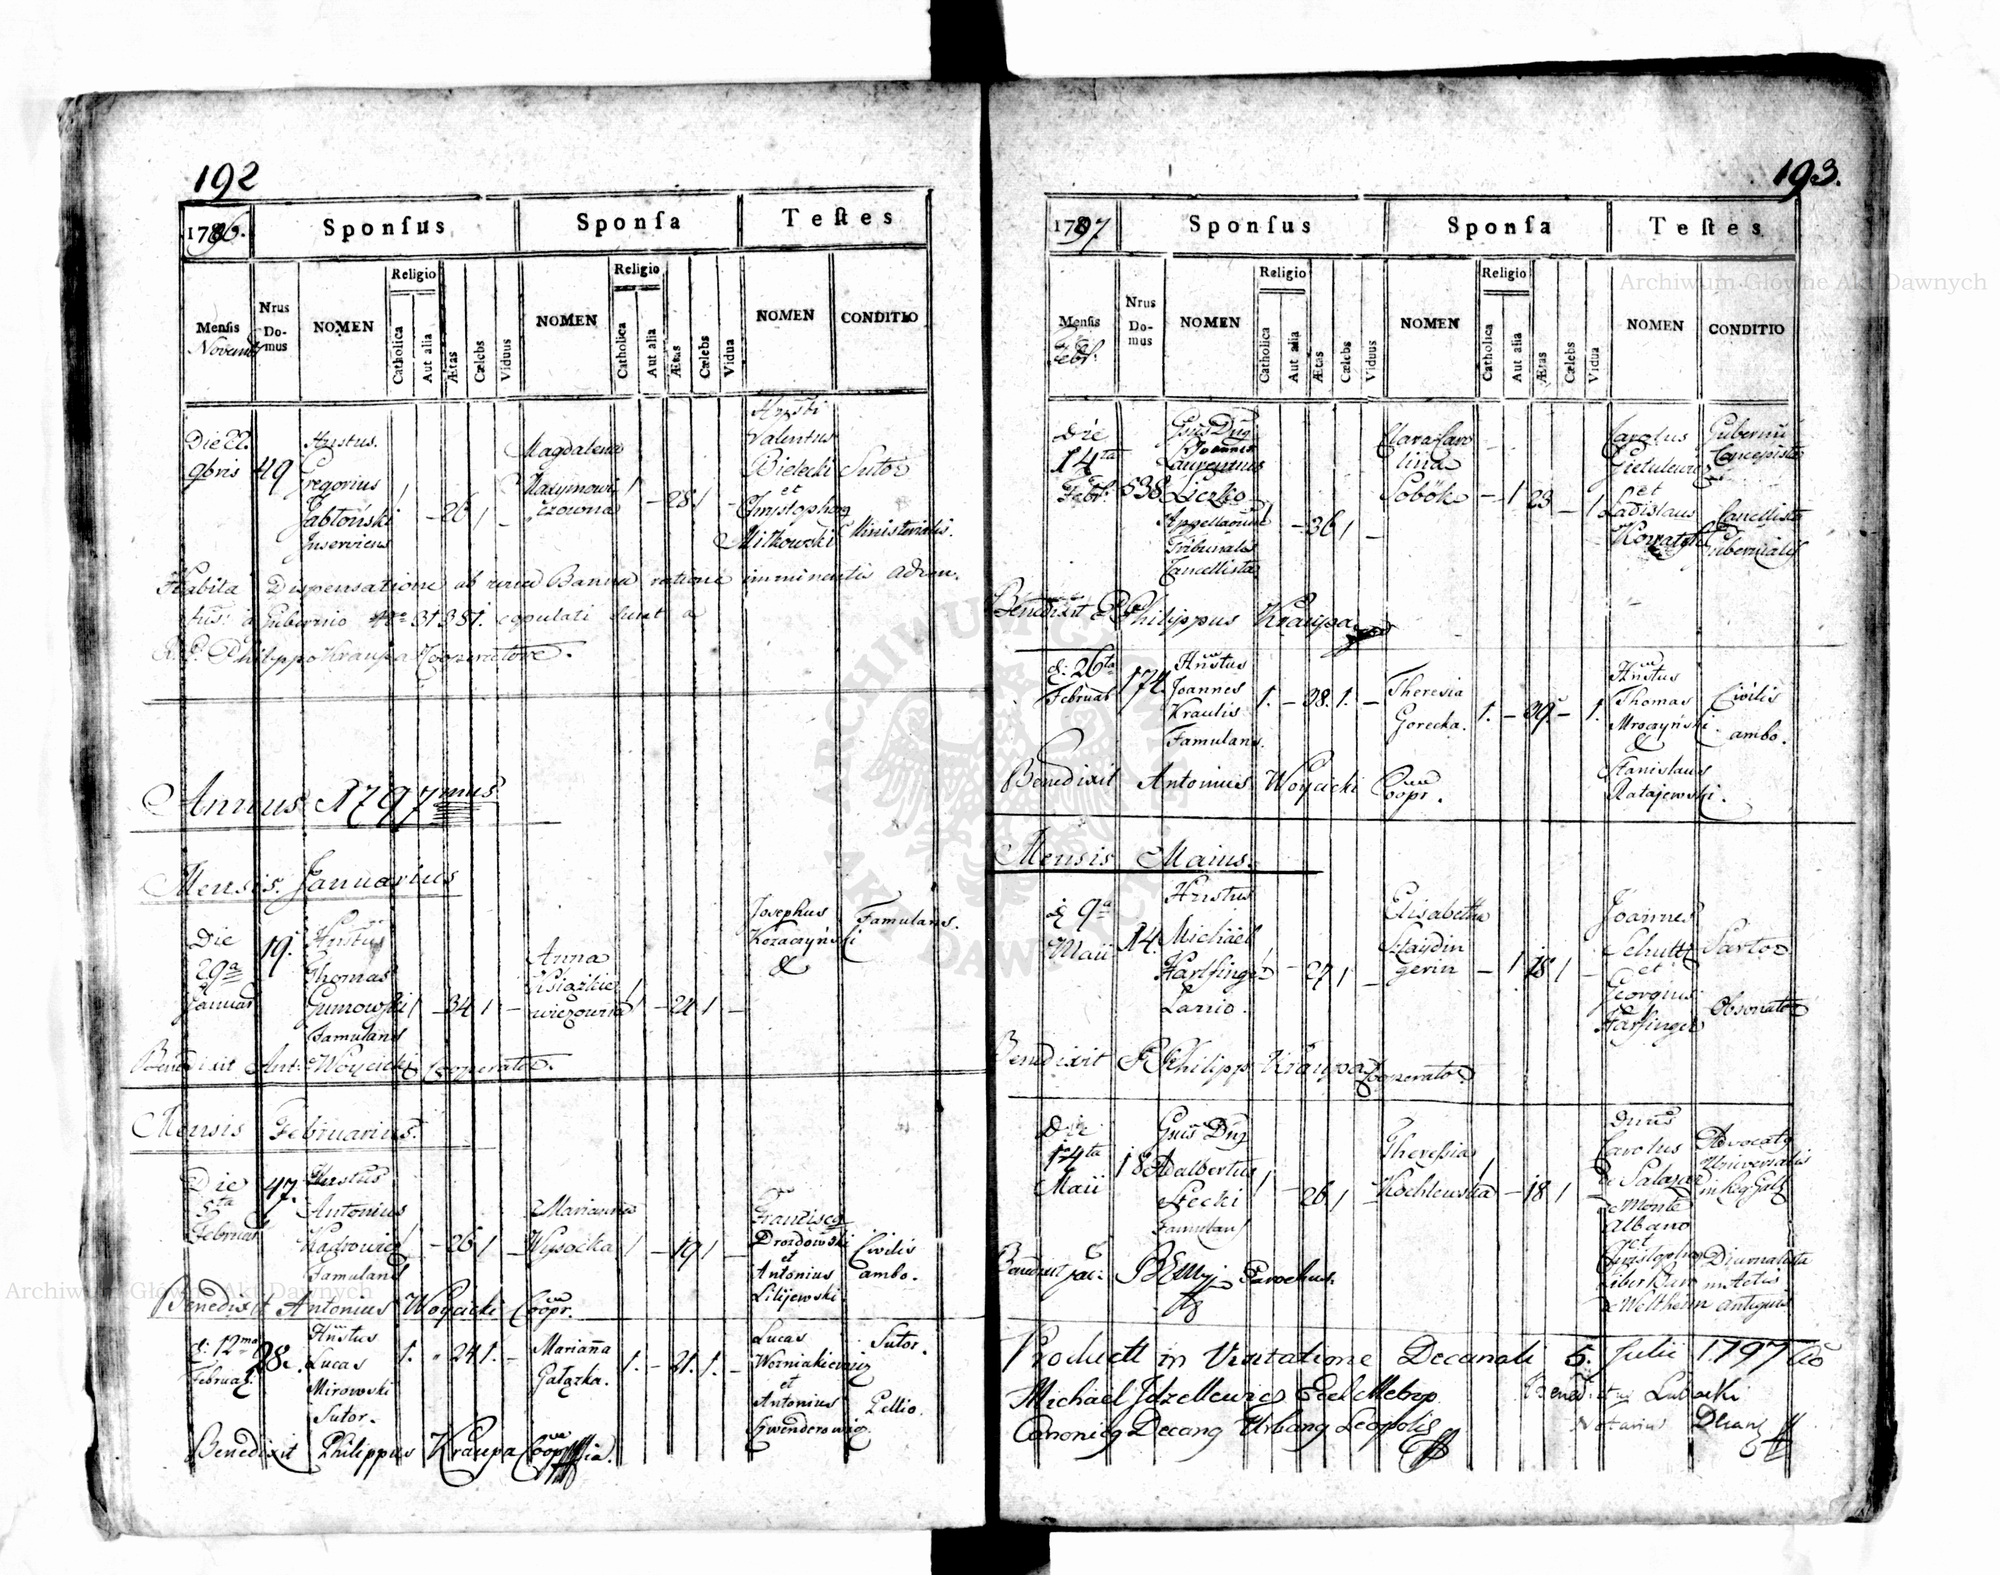 192
1796.
Sponsus
Sponsa
Testes
Mensis
Novemb
Nrus Domus
NOMEN
Religio
Catholica
Aut alia
Ætas
Cælebs
Viduus
NOMEN
Religio
Catholica
Aut alia
Ætas
Cælebs
Vidua
NOMEN
CONDITIO
Die 22.
9bris
49
Hnstus.
Gregorius
Jabłoński
Inserviens
1
–
26
1
–
Magdalena
Maxymowi
czowna
1
–
28
1
–
Hnsti
Valentus
Bielecki
Sutor
et
Christophorg
Milkowski
Ministerialis.
Habita Dispensatione ab una Banna ratione imminentis Adven
tus: a Gubernio Nro 31381. copulati sunt a
R. P. Philippo Kraupa Cooperatore.
Annus 1797mus
Mensis Januarius
Die
29a
Januar
19.
Hnstus
Thomas
Gumowski
Famulans
1
–
34
1
–
Anna
wiczowna
1
–
24
1
–
Josephus
Kozaczyński
&
Famulans.
Benedixit Ant: Woycicki Cooperator.
Mensis Februarius.
Die
5ta
Februar
47.
Hnstus
Antonius
Famulans
1
–
26
1
–
Marianna
Wysocka
1
–
19
1
–
Franciscg
Drozdowski
et
Antonius
Lilijewski.
Civilis
ambo.
Benedixit Antonius Woycicki Coopr.
d: 12ma
Februar:
28.
Hnstus
Lucas
Mirowski
Sutor.
1.
24
1.
–
Marianna
Gałązka.
1.
–
21.
1.
–
Lucas
Wozniakiewicz
et
Antonius
Gwenderowicz
Sutor.
Pellio.
Benedixit Philippus Kraupa Coopr
193.
1797.
Sponsus
Sponsa
Testes
Mensis
Febr.
Nrus Domus
NOMEN
Religio
Catholica
Aut alia
Ætas
Cælebs
Viduus
NOMEN
Religio
Catholica
Aut alia
Ætas
Cælebs
Vidua
NOMEN
CONDITIO
Die
14ta
Febr.
538
Joannes
Laurentius
Liczko
Apellaonum
Tribunalis
Cancellista
1
–
36
1
–
Clara Caro
lina
Sobök
–
1
23
–
1
Carolus
et
Ladislaus
Gubernii
Concepista
Cancellista
Gubernialis
Benedixit P Philippus Kraupa
d: 26ta
Februar
174.
Hnstus
Joannes
Kraulis
Famulans.
1.
–
38.
1.
–
Theresia
Gorecka.
1.
–
39.
–
1.
Hnstus
Thomas
Mroczyński.
&
Stanislaus
Ratajewski.
Civilis
ambo.
Benedixit Antonius Woycicki Coopr.
Mensis Maius.
d 9a
Maii
14.
Hnstus
Michael
Hartfinger
Lanio.
1
–
27
1
–
Elisabetha
Staydin
gerin
–
1
18
1
–
Joannes
Schultz
Sartor
et
Georgius
Harfinger
Obsonator
Benedixit P Philipp Kraupa Cooperator
Die
14ta
Maii
18
Adalbertus
Stecki
Famulans
1
–
26
1
–
Theressia
Kochlewska
1
–
18
1
–
Carolus
de Salazar
de Monte
Albano
et
Christophor
Liber Baro
de Weltheim
Advocatg
Universalis
in Reg Gal
Diurnalista
in Actis
antiquis
Benedixit Jac: Parochus.
Product in Visitatione Decanali 5. Julii 1797 Ao
Michael
Canonicg Decang Urbang Leopolis
Notarius Decang
Archiwum Główne Akt Dawnych
Archiwum Główne Akt Dawnych
ARCHIWUM GŁÓWNE AKT DAWNYCH